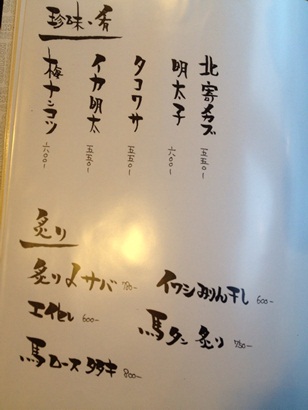 珍味・肴
北寄キムチ
五五〇-
明太子
六〇〇-
タコワサ
五五〇-
イカ明太
五五〇-
梅ナンコツ
六〇〇-
炙り
炙り〆サバ 780-
イワシみりん干し 600-
エイヒレ 600-
馬タン炙り 780-
馬ロースタタキ 800-